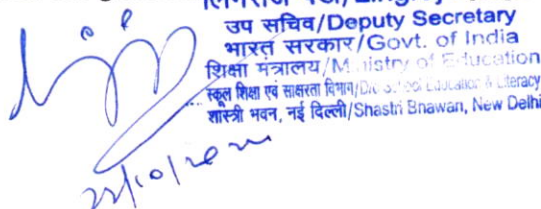 उप सचिव/Deputy Secretary
भारत सरकार/Govt. of India
शिक्षा मंत्रालय/Ministry of Education
स्कूल शिक्षा एवं साक्षरता विभाग/D/o School Education & Literacy
शास्त्री भवन, नई दिल्ली/Shastri Bhawan, New Delhi